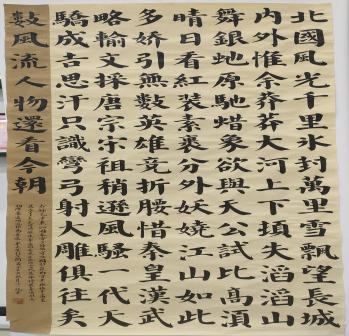 北國風光千里氷封萬里雪飄望長城
内外惟余莽莽大河上下頓失滔滔山
舞銀虵原馳蜡象欲與天公試比髙須
晴日看紅裝素裹分外妖嬈江山如此
多嬌引無數英雄竞折腰惜秦皇漢武
略输文採唐宗宋祖稍遜風騷一代天
驕成吉思汗只識彎弓射大雕俱往矣
數風流人物還看今朝